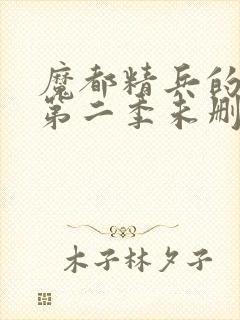 魔都精兵的
第二季未删
木子林夕子